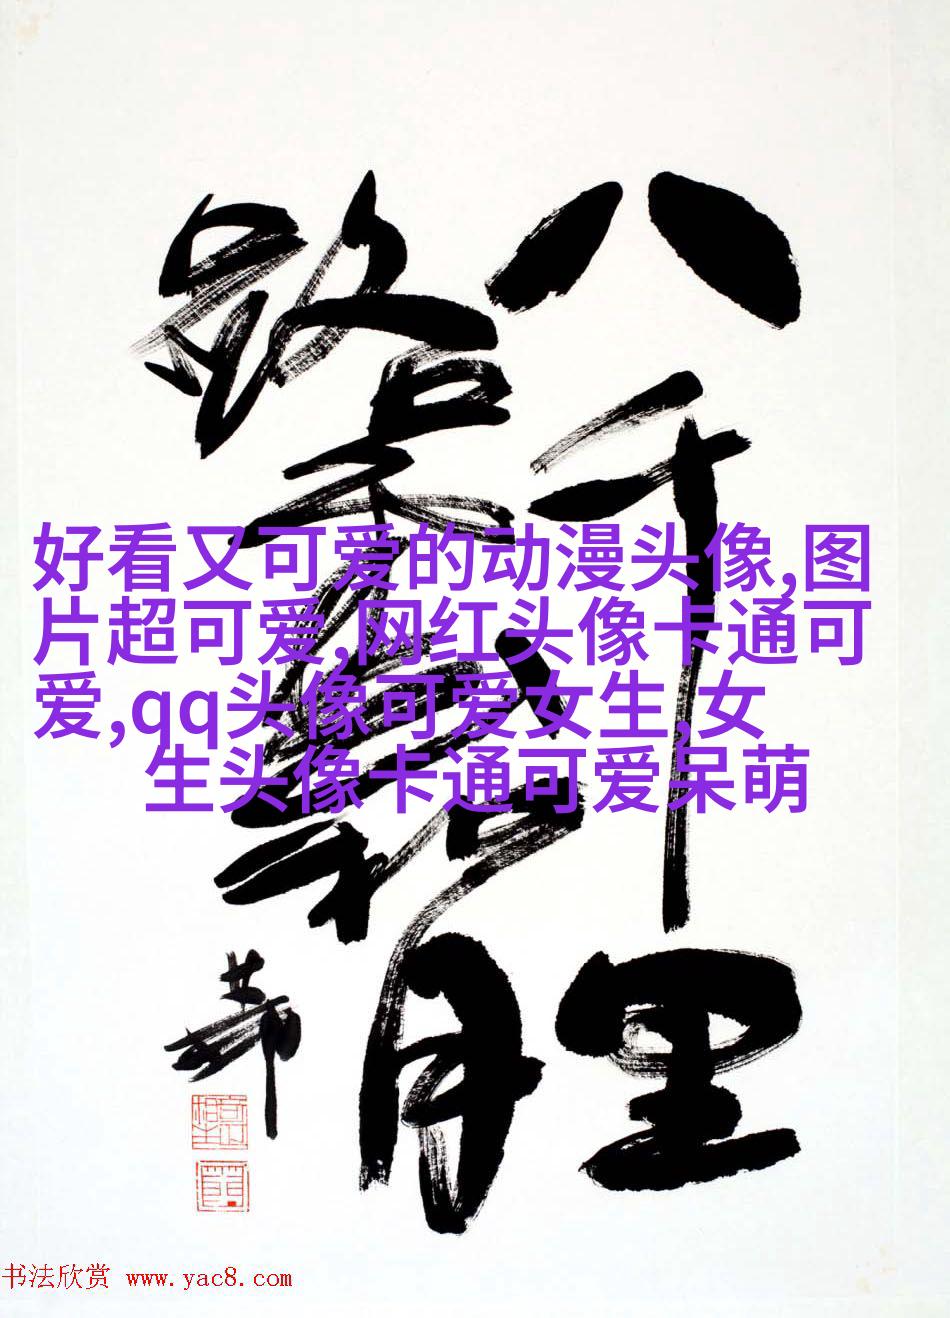 八千里
路雲和月
好看又可爱的动漫头像,图
片超可爱,网红头像卡通可
爱,qq头像可爱女生,女
生头像卡通可爱呆萌
书法欣赏 www.yac8.com